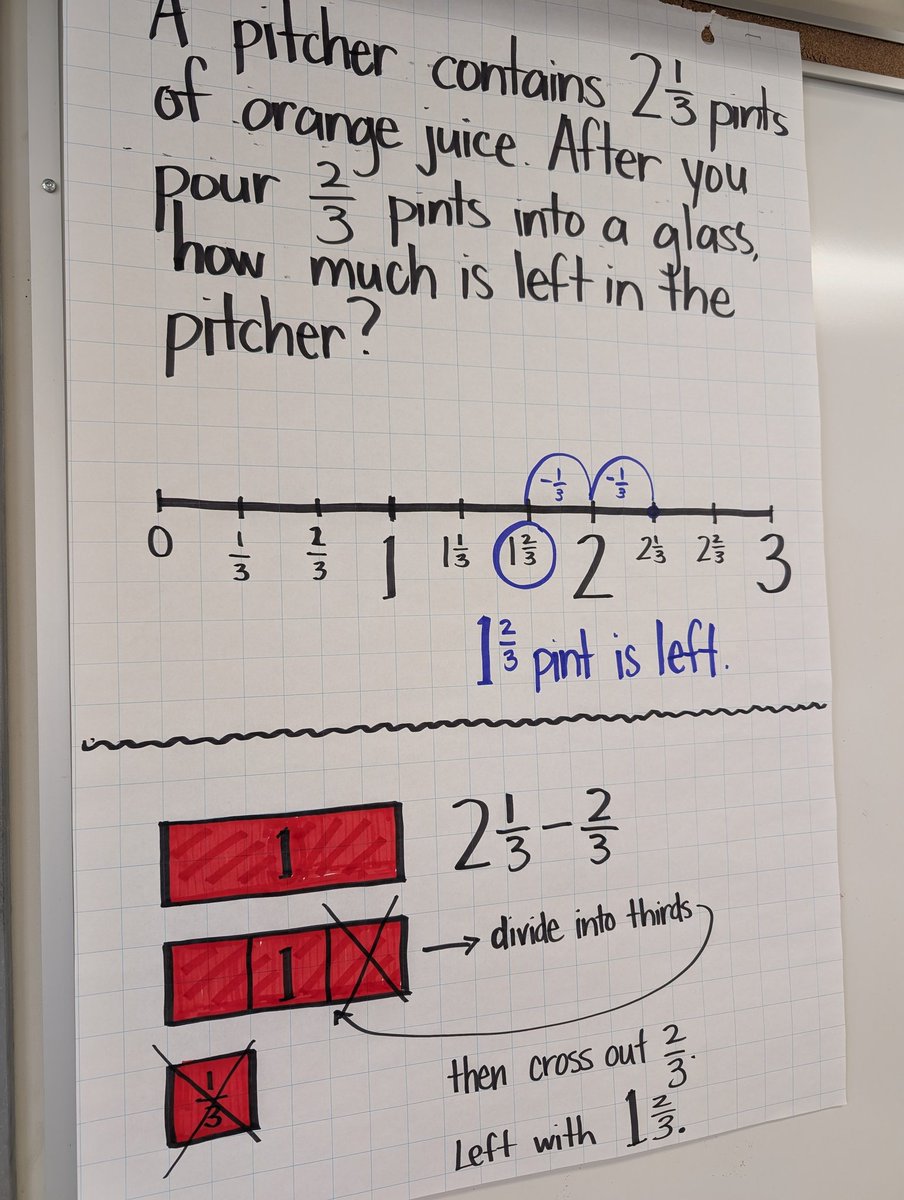 A pitcher contains 2 1/3 pints
of orange juice. After you
pour 2/3 pints into a glass,
how much is left in the
pitcher?
-1/3 -1/3
0 1/3 2/3 1 1 1/3 1 2/3 2 2 1/3 2 2/3 3
1 2/3 pint is left.
1 2 1/3 - 2/3
1 → divide into thirds
1/3
then cross out 2/3.
Left with 1 2/3.